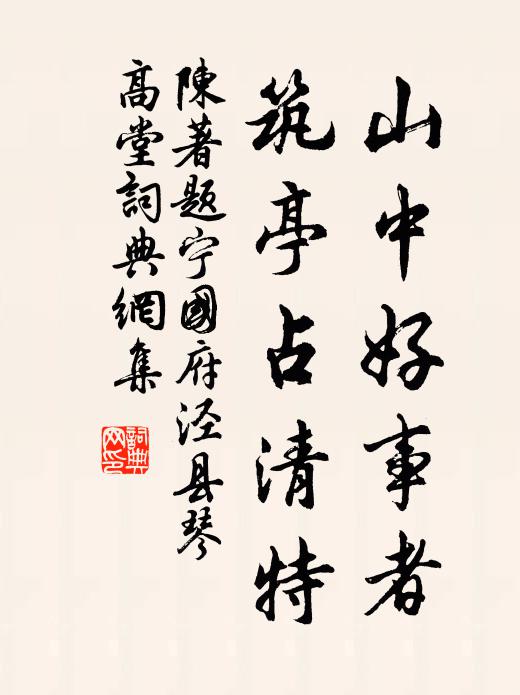 山中好事者
筑亭占清特
陳著题宁國府泾县琴
高堂詞典網集
詞典網印